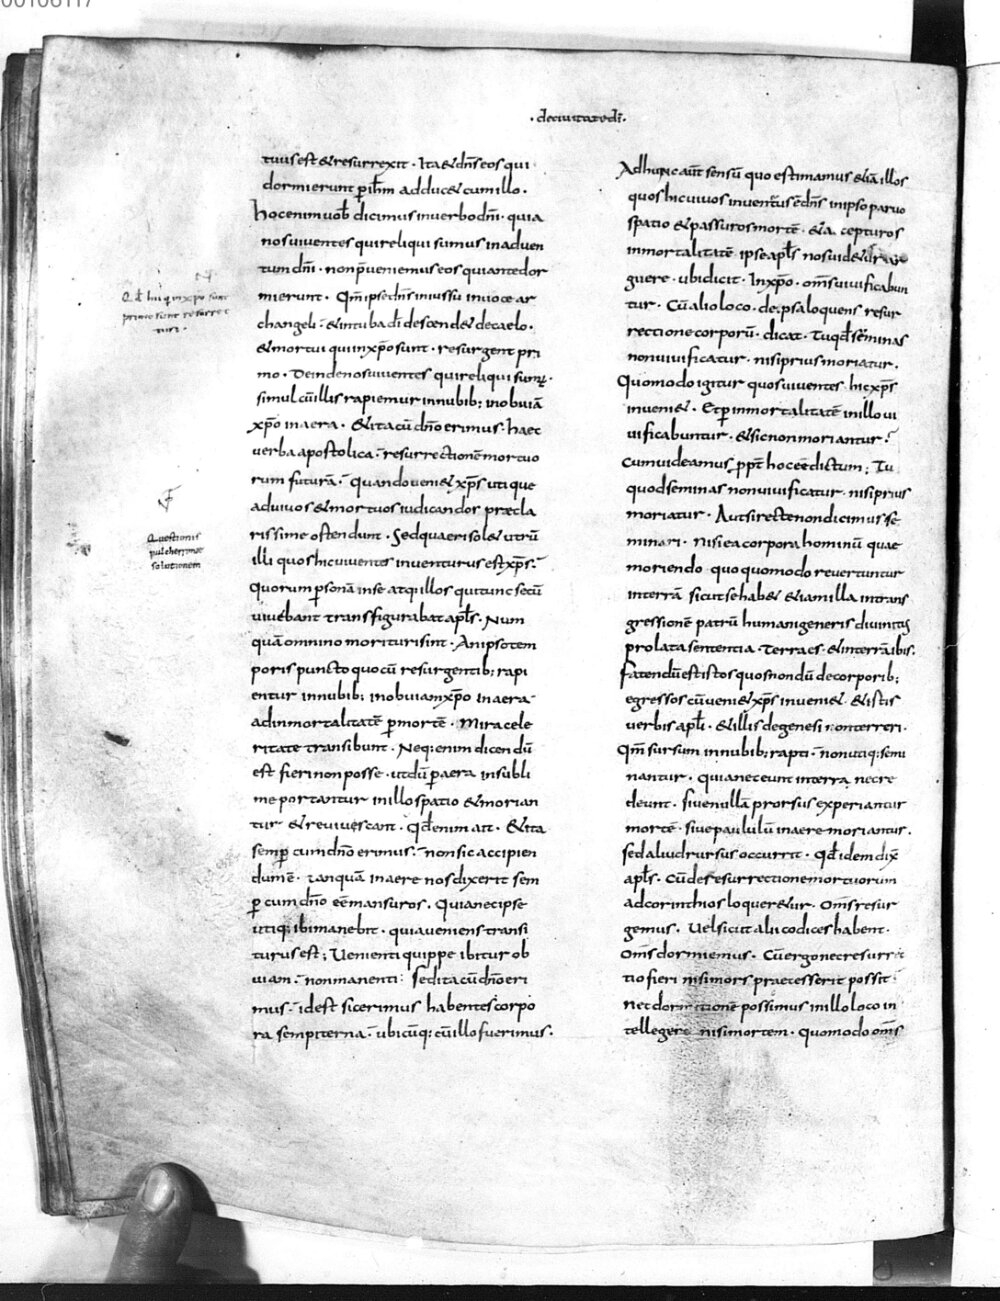 00106117
· deciuitatedi ·
tuus est & resurrexit · Ita & dn̄s eos qui
dormierunt ꝑ ih̄m adduc& cum illo ·
hoc enim uob̄ dicimus in uerbo dn̄i · quia
nos uiuentes qui reliqui sumus in aduen
tum dn̄i · non p̄ueniemus eos qui ante dor
mierunt · Qm̄ ipse dn̄s in iussu in uoce ar
changeli · & in tuba dī descend& de caelo ·
& mortui qui in xp̄o sunt · resurgent pri
mo · Deinde nos uiuentes qui reliqui sumꝰ ·
simul cū illis rapiemur in nubib; in obuiā
xp̄o in aera · & ita cū dn̄o erimus · haec
uerba apostolica · resurrectionē mortuo
rum futurā · Quando ueni& xp̄s utique
ad uiuos & mortuos iudicandos praecla
rissime ostendunt · Sed quaeri sol& utrū
illi quos hic uiuentes inuenturus est xp̄s ·
Quorum ꝑsonā in se atq; illos qui tunc secū
uiuebant transfigurabat apl̄s · Num
quā omnino morituri sint · An ipso tem
poris puncto quo cū resurgentib; rapi
entur in nubib; in obuiam xp̄o in aera
ad inmortalitatē ꝑ mortē · Mira cele
ritate transibunt · Neq; enim dicendū
est fieri non posse · ut dū ꝑ aera in subli
me portantur in illo spatio & morian
tur & reuiuescant · Qd̄ enim ait · & ita
semꝑ cum dn̄o erimus · non sic accipien
dum ē · tanquā in aere nos dixerit sem
ꝑ cum dn̄o eē mansuros · Quia nec ipse
utiq; ibi manebit · quia ueniens transi
turus est ; Uenienti quippe ibitur ob
uiam · non manenti · sed ita cū dn̄o eri
mus · id est sic erimus habentes corpo
ra sempiterna · ubicūq; cū illo fuerimus ·
Ad hunc aut̄ sensū quo estimamus &iā illos
quos hic uiuos inuenturus ē dn̄s in ipso paruo
spatio & passuros mortē · & a cepturos
inmortalitatē ipse apl̄s nos uid&ur ur
guere · ubi dicit · In xp̄o · om̄s uiuificabun
tur · Cū alio loco · de ipsa loquens resur
rectione corporū · dicat · Tu qd̄ seminas
non uiuificatur · nisi prius moriatur ·
Quomodo igitur quos uiuentes hic xp̄s
inueni& · Et ꝑ inmortalitatē in illo ui
uificabuntur · & si c non moriantur ·
Cum uideamus ppt̄ hoc eē dictum ; Tu
quod seminas non uiuificatur · nisi prius
moriatur · Aut si recte non dicimus se
minari · nisi ea corpora hominū quae
moriendo quoquomodo reuertuntur
in terrā sicut se hab& &iam illa in trans
gressionē patrū humani generis diuinitus
prolata sententia · Terra es · & in terrā ibis ·
Fatendū est istos quos nondū de corporib;
egressos cū ueni& xp̄s inueni& · & istis
uerbis apl̄i · & illis de genesi non teneri ·
Qm̄ sursum in nubib; rapti · non utiq; semi
nantur · quia nec eunt in terrā nec re
deunt · siue nullā prorsus experiantur
mortē · siue paululū in aere moriantur ·
sed aliud rursus occurrit · Qd̄ idem dix̄
apl̄s · Cū de resurrectione mortuorum
ad corinthios loquer&ur · om̄s resur
gemus · Uel sicut alii codices habent ·
Om̄s dormiemus · Cū ergo nec resurrec
tio fieri nisi mors praecesserit possit ·
nec dormitionē possimus in illo loco in
tellegere nisi mortem · quomodo om̄s
Qd̄ hi qui in xp̄o sunt
primo sint resurrec
turi ·
Questionis
pulcherrimae
solutionem